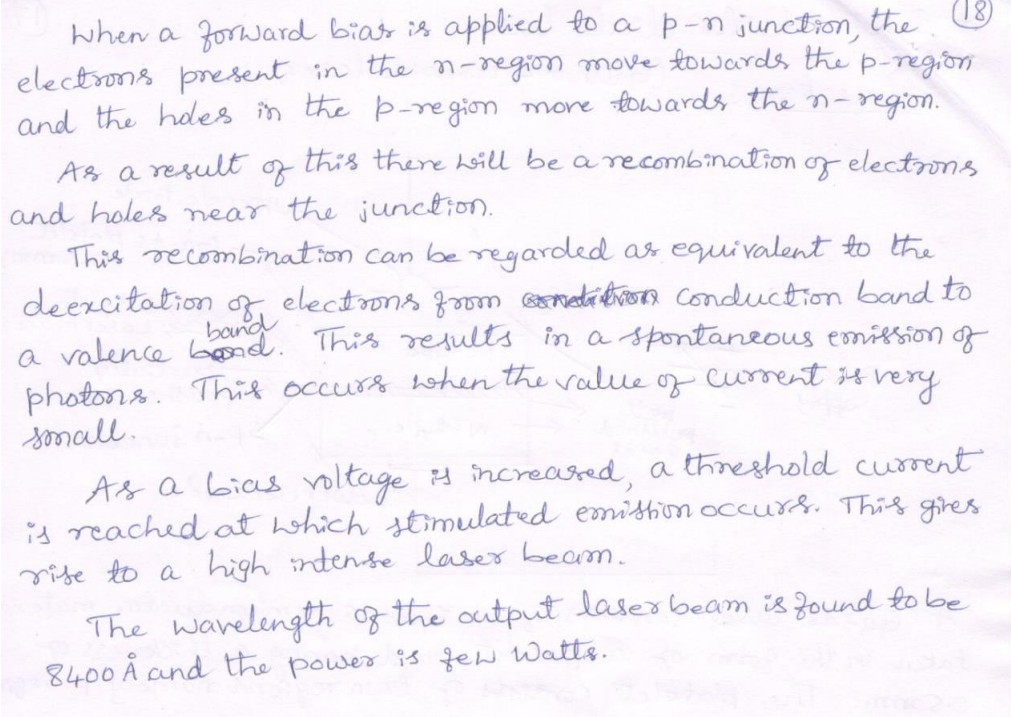 18
When a forward bias is applied to a p-n junction, the
electrons present in the n-region move towards the p-region
and the holes in the p-region move towards the n-region.
As a result of this there will be a recombination of electrons
and holes near the junction.
This recombination can be regarded as equivalent to the
deexcitation of electrons from conduction band to
a valence band. This results in a spontaneous emission of
photons. This occurs when the value of current is very
small.
As a bias voltage is increased, a threshold current
is reached at which stimulated emission occurs. This gives
rise to a high intense laser beam.
The wavelength of the output laser beam is found to be
8400 Å and the power is few Watts.